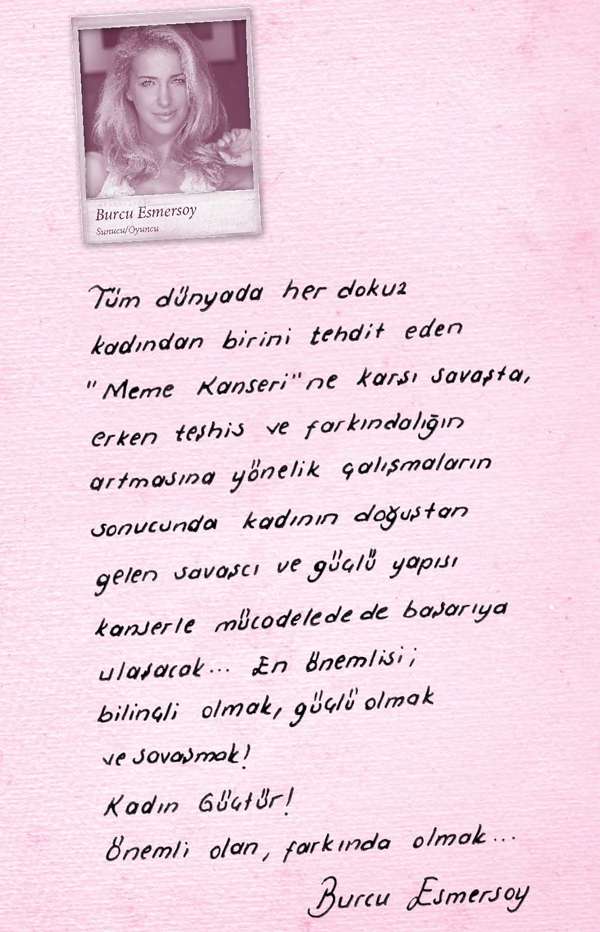 Burcu Esmersoy
Sunucu/Oyuncu
Tüm dünyada her dokuz
kadından birini tehdit eden
"Meme Kanseri"ne karsı savaşta,
erken teşhis ve farkındalığın
artmasına yönelik çalışmaların
sonucunda kadının doğuştan
gelen savascı ve güçlü yapısı
kanserle mücadelede de basarıya
ulaşacak... En önemlisi;
bilinçli olmak, güçlü olmak
ve savasmak!
Kadın Güçtür!
Önemli olan, farkında olmak...
Burcu Esmersoy